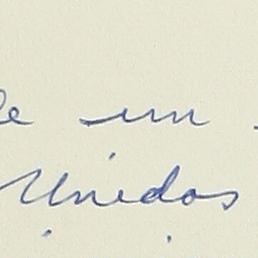 de un
Unidos